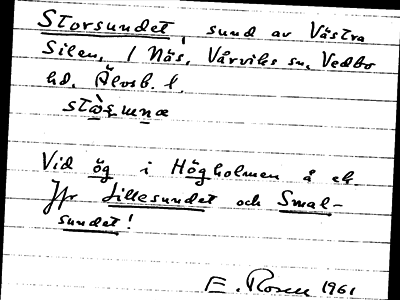 Storsundet, sund av Västra
Silen, i Näs, Vårviks sn, Vedbo
hd, Älvsb. l.

Vid ög i Högholmen å ek.
Jfr Lillesundet och Smal-
sundet!
E. Rosen 1961